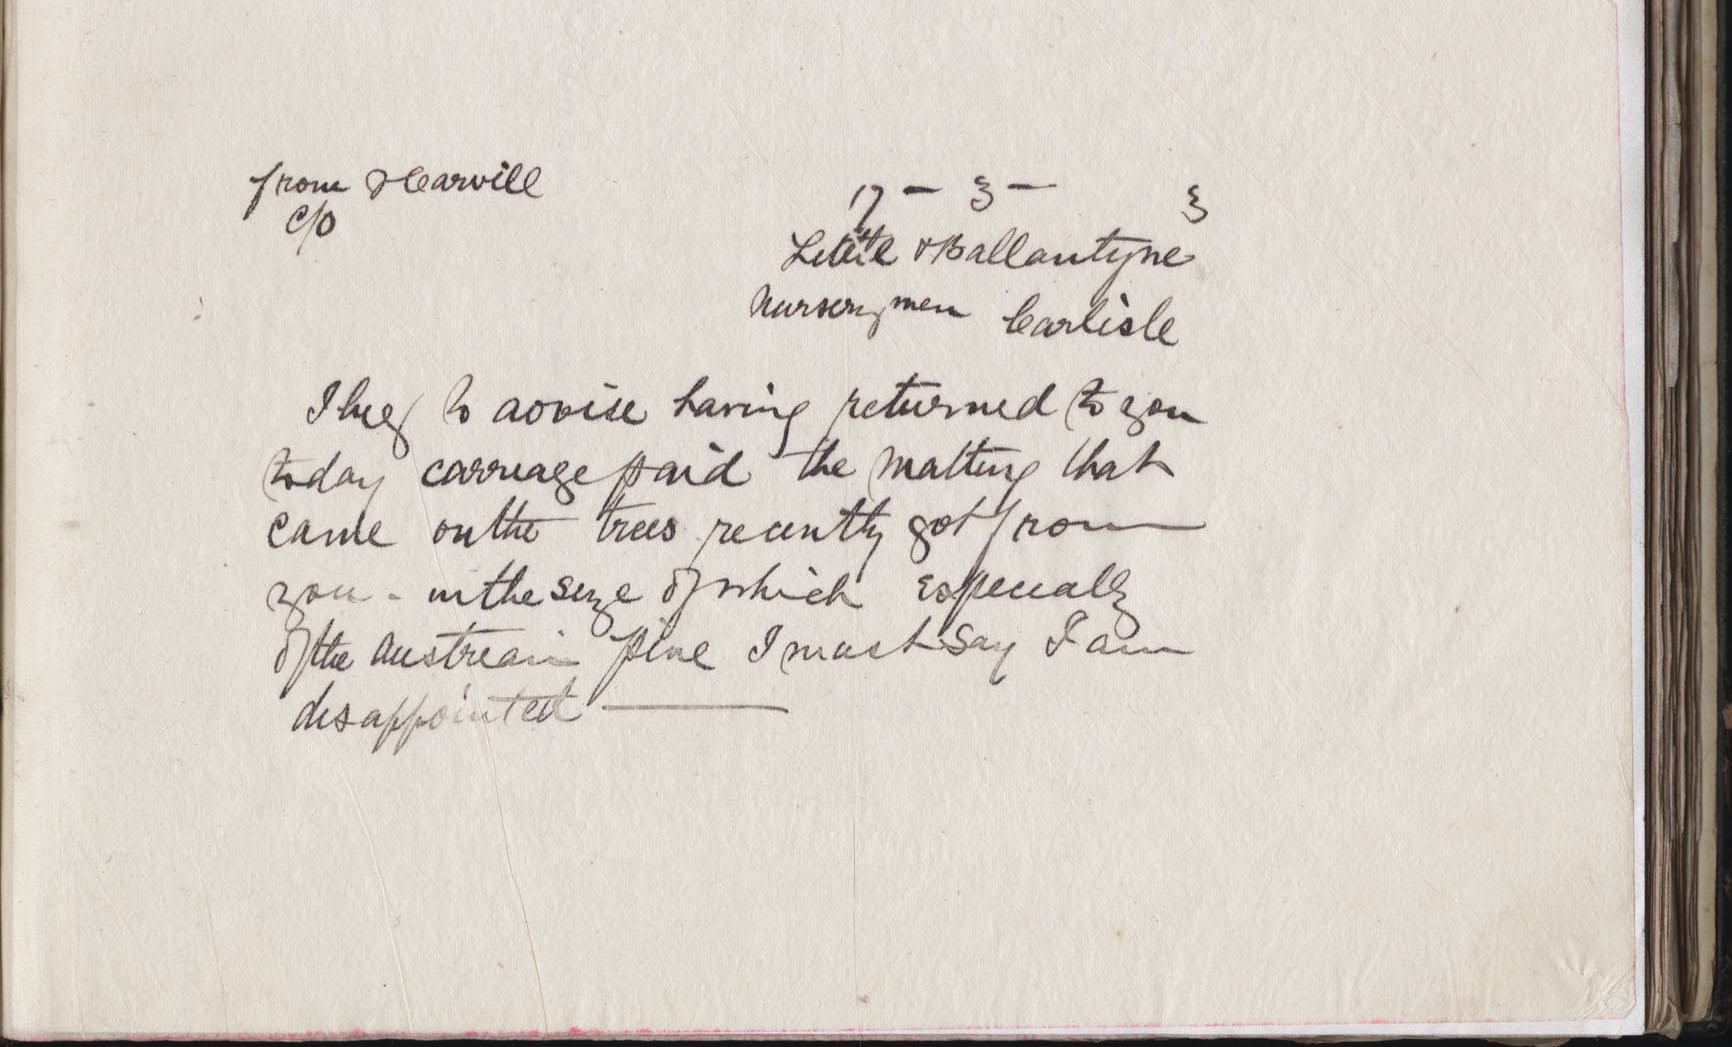 from H Carvill
c/o
17 - 3 - 3
Little & Ballantyne
Nurserymen Carlisle
I beg to advise having returned to you
today carriage paid the matting that
came on the trees recently got from
you - in the size of which especially
of the Austrian pine I must say I am
disappointed